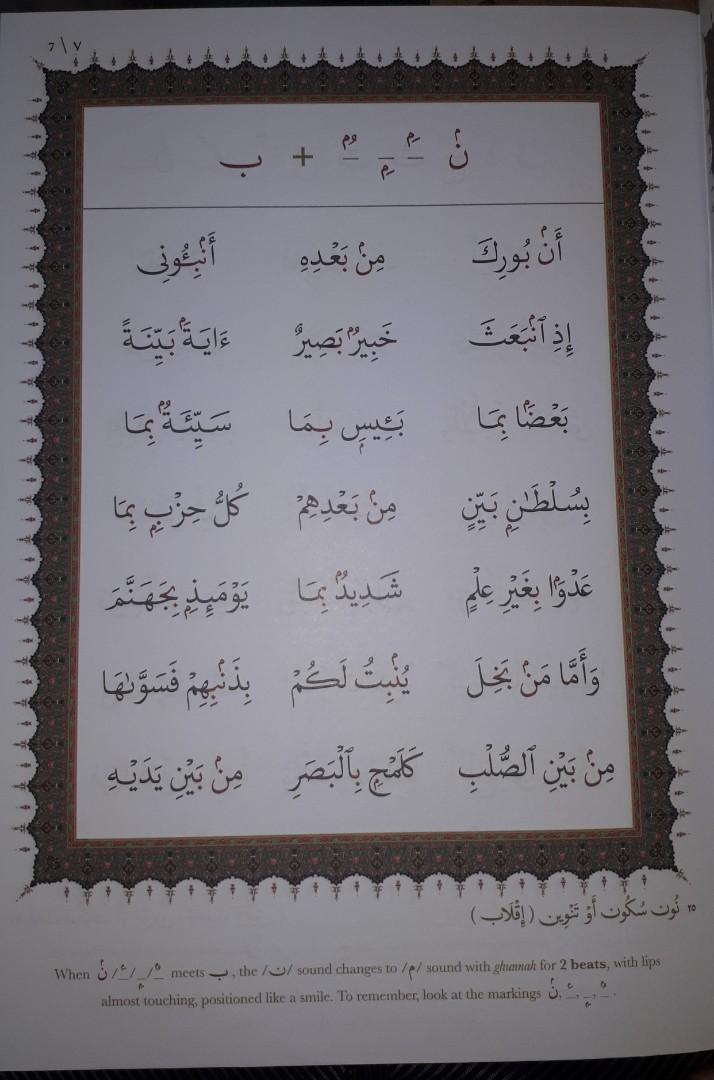 7 \ ٧
نۢ ـَۢ ـِۭ ـُۢ + ب
أَنۢ بُورِكَ مِنۢ بَعْدِهِ أَنۢبِـُٔونِى
إِذِ ٱنۢبَعَثَ خَبِيرُۢ بَصِيرٌ ءَايَةَۢ بَيِّنَةً
بَعْضَۢا بِمَا بَـِٔيسِۭ بِمَا سَيِّئَةُۢ بِمَا
بِسُلْطَـٰنِۭ بَيِّنٍ مِنۢ بَعْدِهِمْ كُلُّ حِزْبِۭ بِمَا
عَدْوَۢا بِغَيْرِ عِلْمٍ شَدِيدُۢ بِمَا يَوْمَئِذِۭ بِجَهَنَّمَ
وَأَمَّا مَنۢ بَخِلَ يُنۢبِتُ لَكُمْ بِذَنۢبِهِمْ فَسَوَّىٰهَا
مِنۢ بَيْنِ ٱلصُّلْبِ كَلَمْحِۭ بِٱلْبَصَرِ مِنۢ بَيْنِ يَدَيْهِ
٢٥ نُون سُكُون أَوْ تَنْوِين (إِقْلَاب)
When نۢ /ـَۢ/ـِۭ/ـُۢ meets ب, the /ن/ sound changes to /م/ sound with ghunnah for 2 beats, with lips
almost touching, positioned like a smile. To remember, look at the markings نۢ, ـَۢ, ـِۭ, ـُۢ.